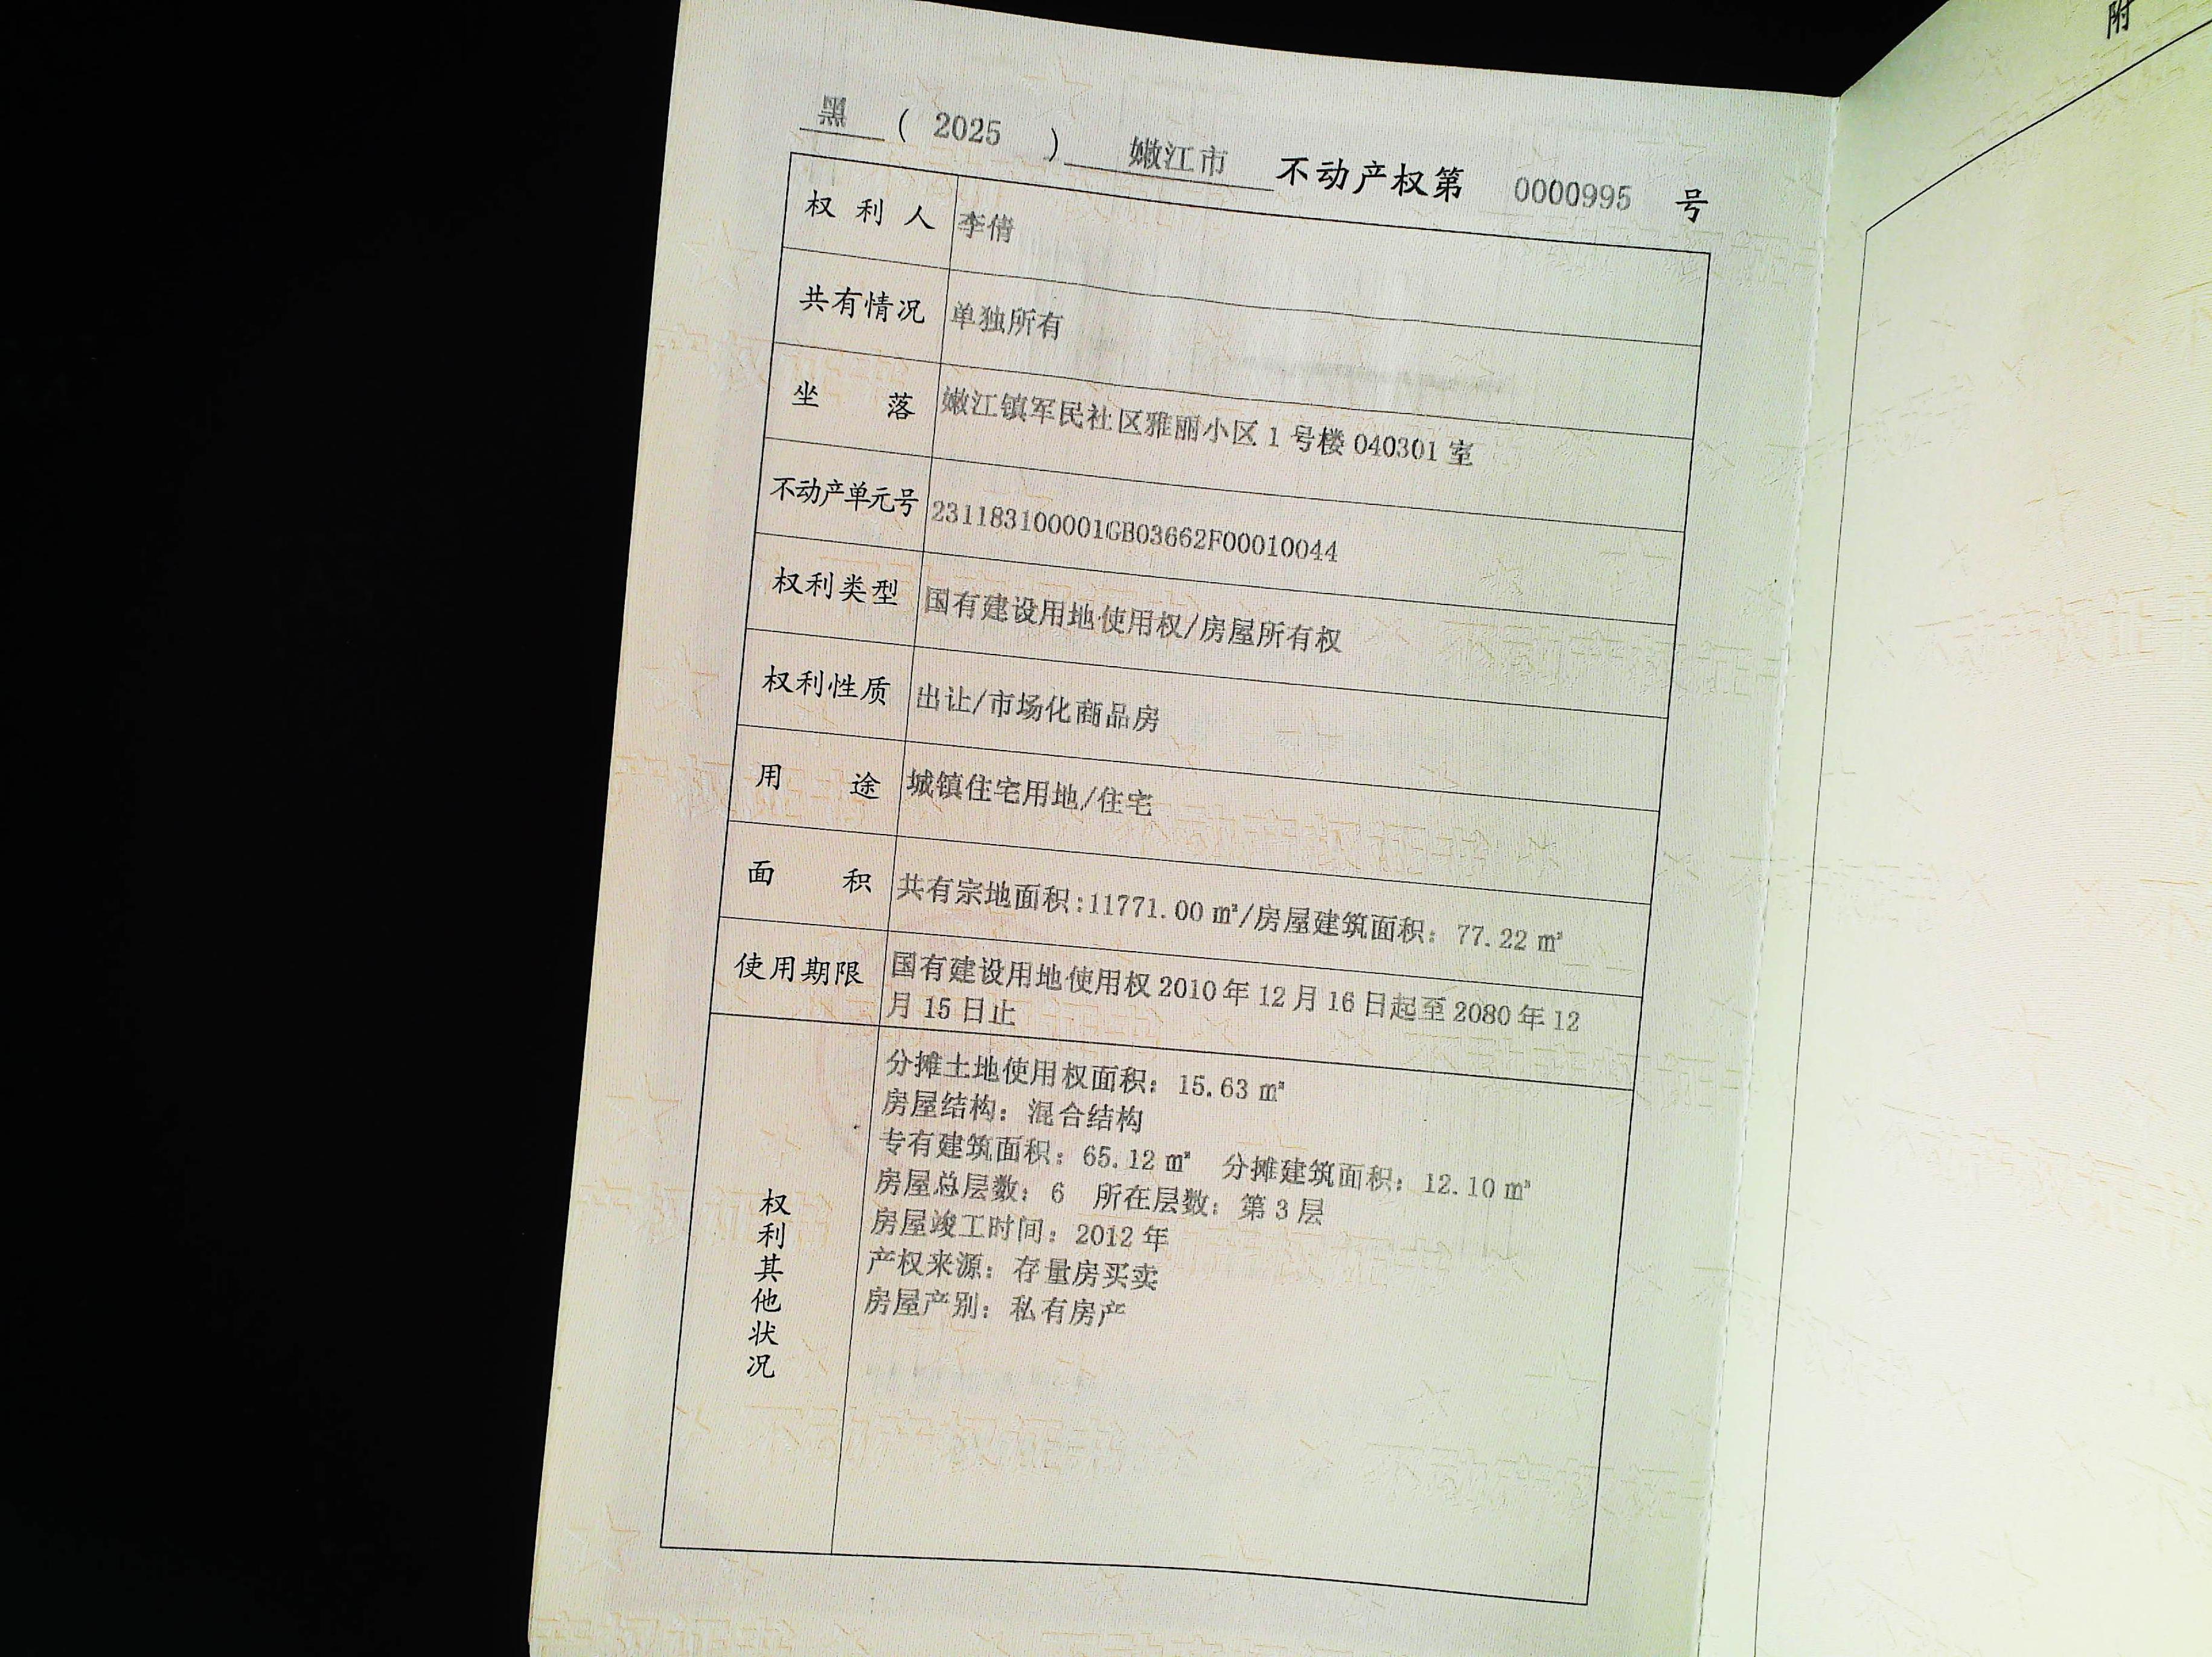 黑 ( 2025 ) 嫩江市 不动产权第 0000995 号
权利人 李倩
共有情况 单独所有
坐落 嫩江镇军民社区雅丽小区 1 号楼 040301 室
不动产单元号 231183100001GB03662F00010044
权利类型 国有建设用地使用权/房屋所有权
权利性质 出让/市场化商品房
用途 城镇住宅用地/住宅
面积 共有宗地面积:11771.00 ㎡/房屋建筑面积: 77.22 ㎡
使用期限 国有建设用地使用权 2010 年 12 月 16 日起至 2080 年 12
月 15 日止
权利其他状况
分摊土地使用权面积: 15.63 ㎡
房屋结构: 混合结构
专有建筑面积: 65.12 ㎡ 分摊建筑面积: 12.10 ㎡
房屋总层数: 6 所在层数: 第 3 层
房屋竣工时间: 2012 年
产权来源: 存量房买卖
房屋产别: 私有房产
附